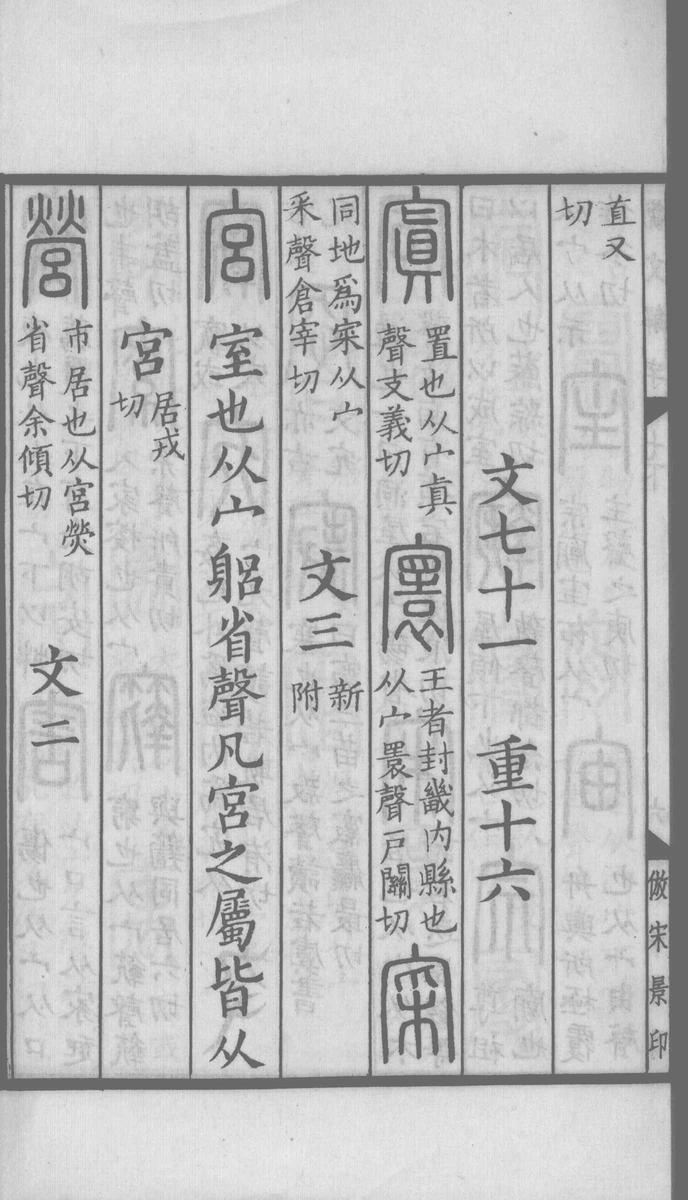 倣宋景印
直又
切
文七十一 重十六
寘
置也从宀眞
聲支義切
寰
王者封畿内縣也
从宀睘聲戶關切
寀
同地爲寀从宀
采聲倉宰切
文三
新
附
宮 室也从宀躳省聲凡宮之屬皆从
宮
居戎
切
營
市居也从宮熒
省聲余傾切
文二